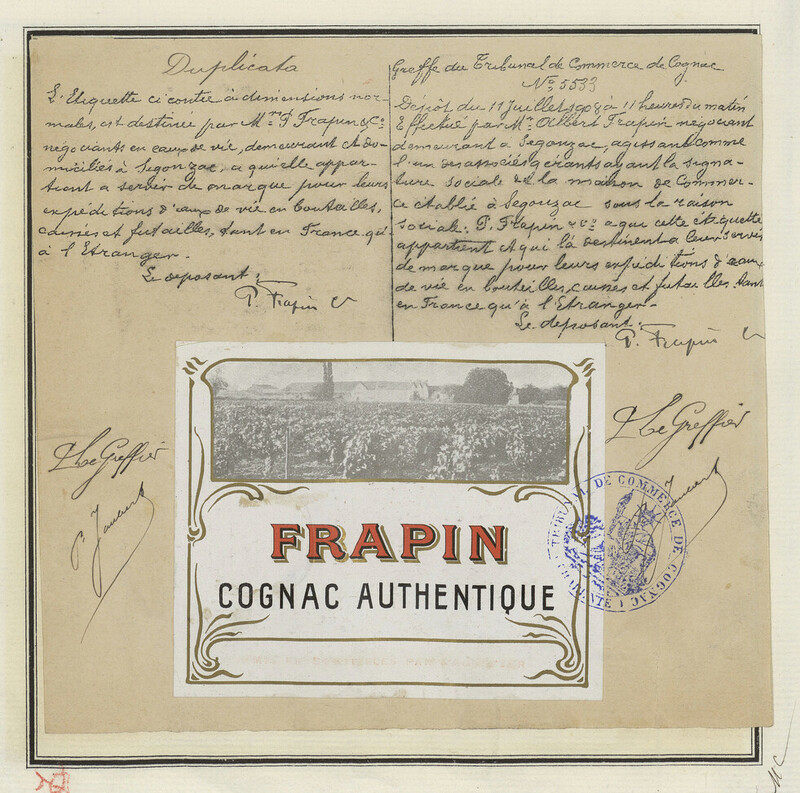 Duplicata
L'Etiquette ci contre à dimensions nor-
males, est destinée par Mrs P. Frapin & Co
négociants en eaux de vie, demeurant et do-
miciliés à Segonzac, a qui elle appar-
tient a servir de marque pour leurs
expéditions d'eaux de vie en bouteilles,
caisses et futailles, tant en France qu'
à l'Etranger.
Le déposant:
P. Frapin
Greffe du Tribunal de Commerce de Cognac
No 5533
Dépôt du 11 Juillet à 11 heures du matin
Effectué par Mr Albert Frapin négociant
demeurant a Segonzac, agissant comme
l'un des associés gérants ayant la signa-
ture sociale de la maison de Commer-
ce établie à Segonzac sous la raison
sociale: P. Frapin & Co a qui cette étiquette
appartient et qui la destinent a leur servir
de marque pour leurs expéditions d'eaux
de vie en bouteilles, caisses et futailles tant
en France qu'à l'Etranger.
Le déposant:
P. Frapin
Le Greffier
Le Greffier
TRIBUNAL DE COMMERCE DE COGNAC
FRAPIN
COGNAC AUTHENTIQUE
MC